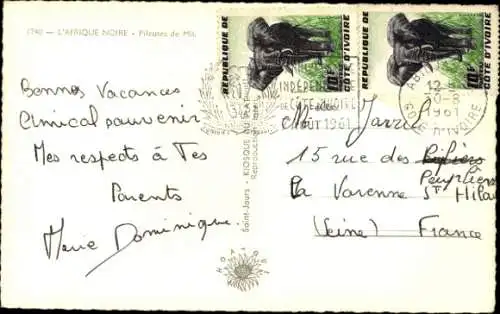 1740 — L'AFRIQUE NOIRE - Pileuses de Mil.
REPUBLIQUE DE CÔTE D'IVOIRE
10F
REPUBLIQUE DE CÔTE D'IVOIRE
10F
INDÉPENDANCE
DE CÔTE D'IVOIRE
AOÛT 1961
12-
10-8
1961
CÔTE D'IVOIRE
Bonnes Vacances
Amical souvenir
Mes respects à Tes
Parents
Marie Dominique.
Saint-Jours - KIOSQUE DU PLATEAU
HOA-QUI
15 rue des
Peupliers
La Varenne St Hilaire
(Seine) France